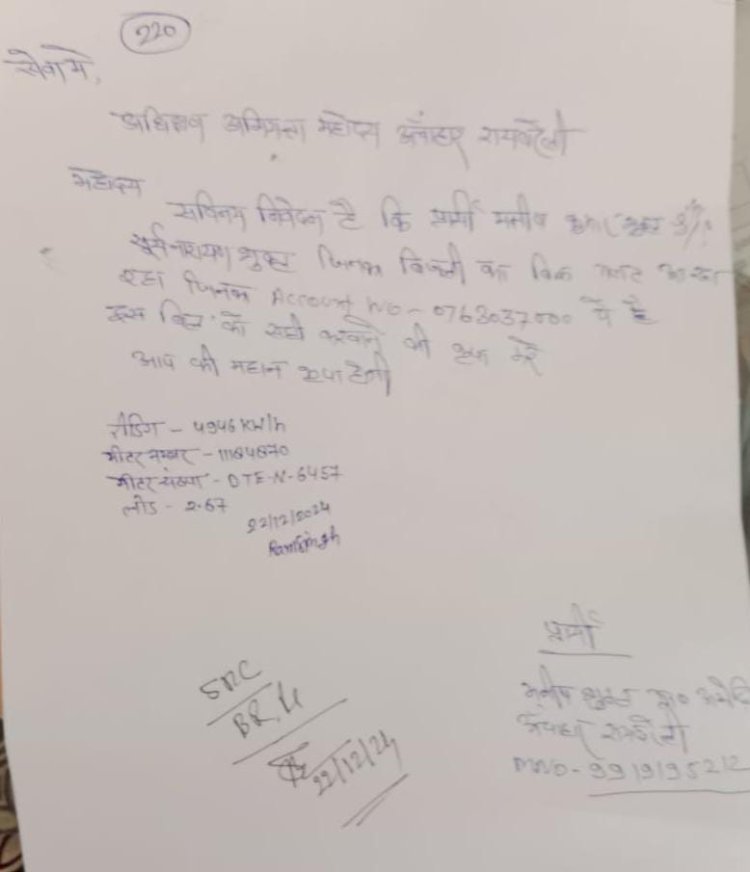 220
सेवा मे,
अधिशाषी अभियन्ता महोदय ऊँचाहार रायबरेली
महोदय
सविनय निवेदन है कि प्रार्थी मनीष कुमार शुक्ल S/o
सूर्यनारायण शुक्ल जिनका बिजली का बिल गलत आ रहा
जिनका Account No - 0763037000 है
इस बिल को सही करवाने की कृपा करें
आप की महान कृपा होगी
रीडिंग - 4946 KW/h
मीटर नम्बर - 11184870
मीटर संख्या - DTE-N-6457
लोड - 2.67
22/12/2024
Ramsingh
प्रार्थी
SRC
BR.
22/12/24
मनीष शुक्ल
ऊँचाहार रायबरेली
MNO- 991919521